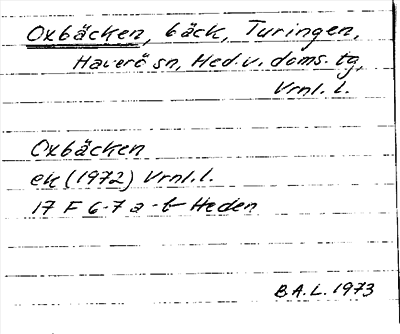 Oxbäcken, bäck, Turingen,
Haverö sn, Hed.v. doms. tg,
Vrnl. l.
Oxbäcken
ek (1972) Vrnl. l.
17 F 6-7 a-b Heden
B.A.L. 1973